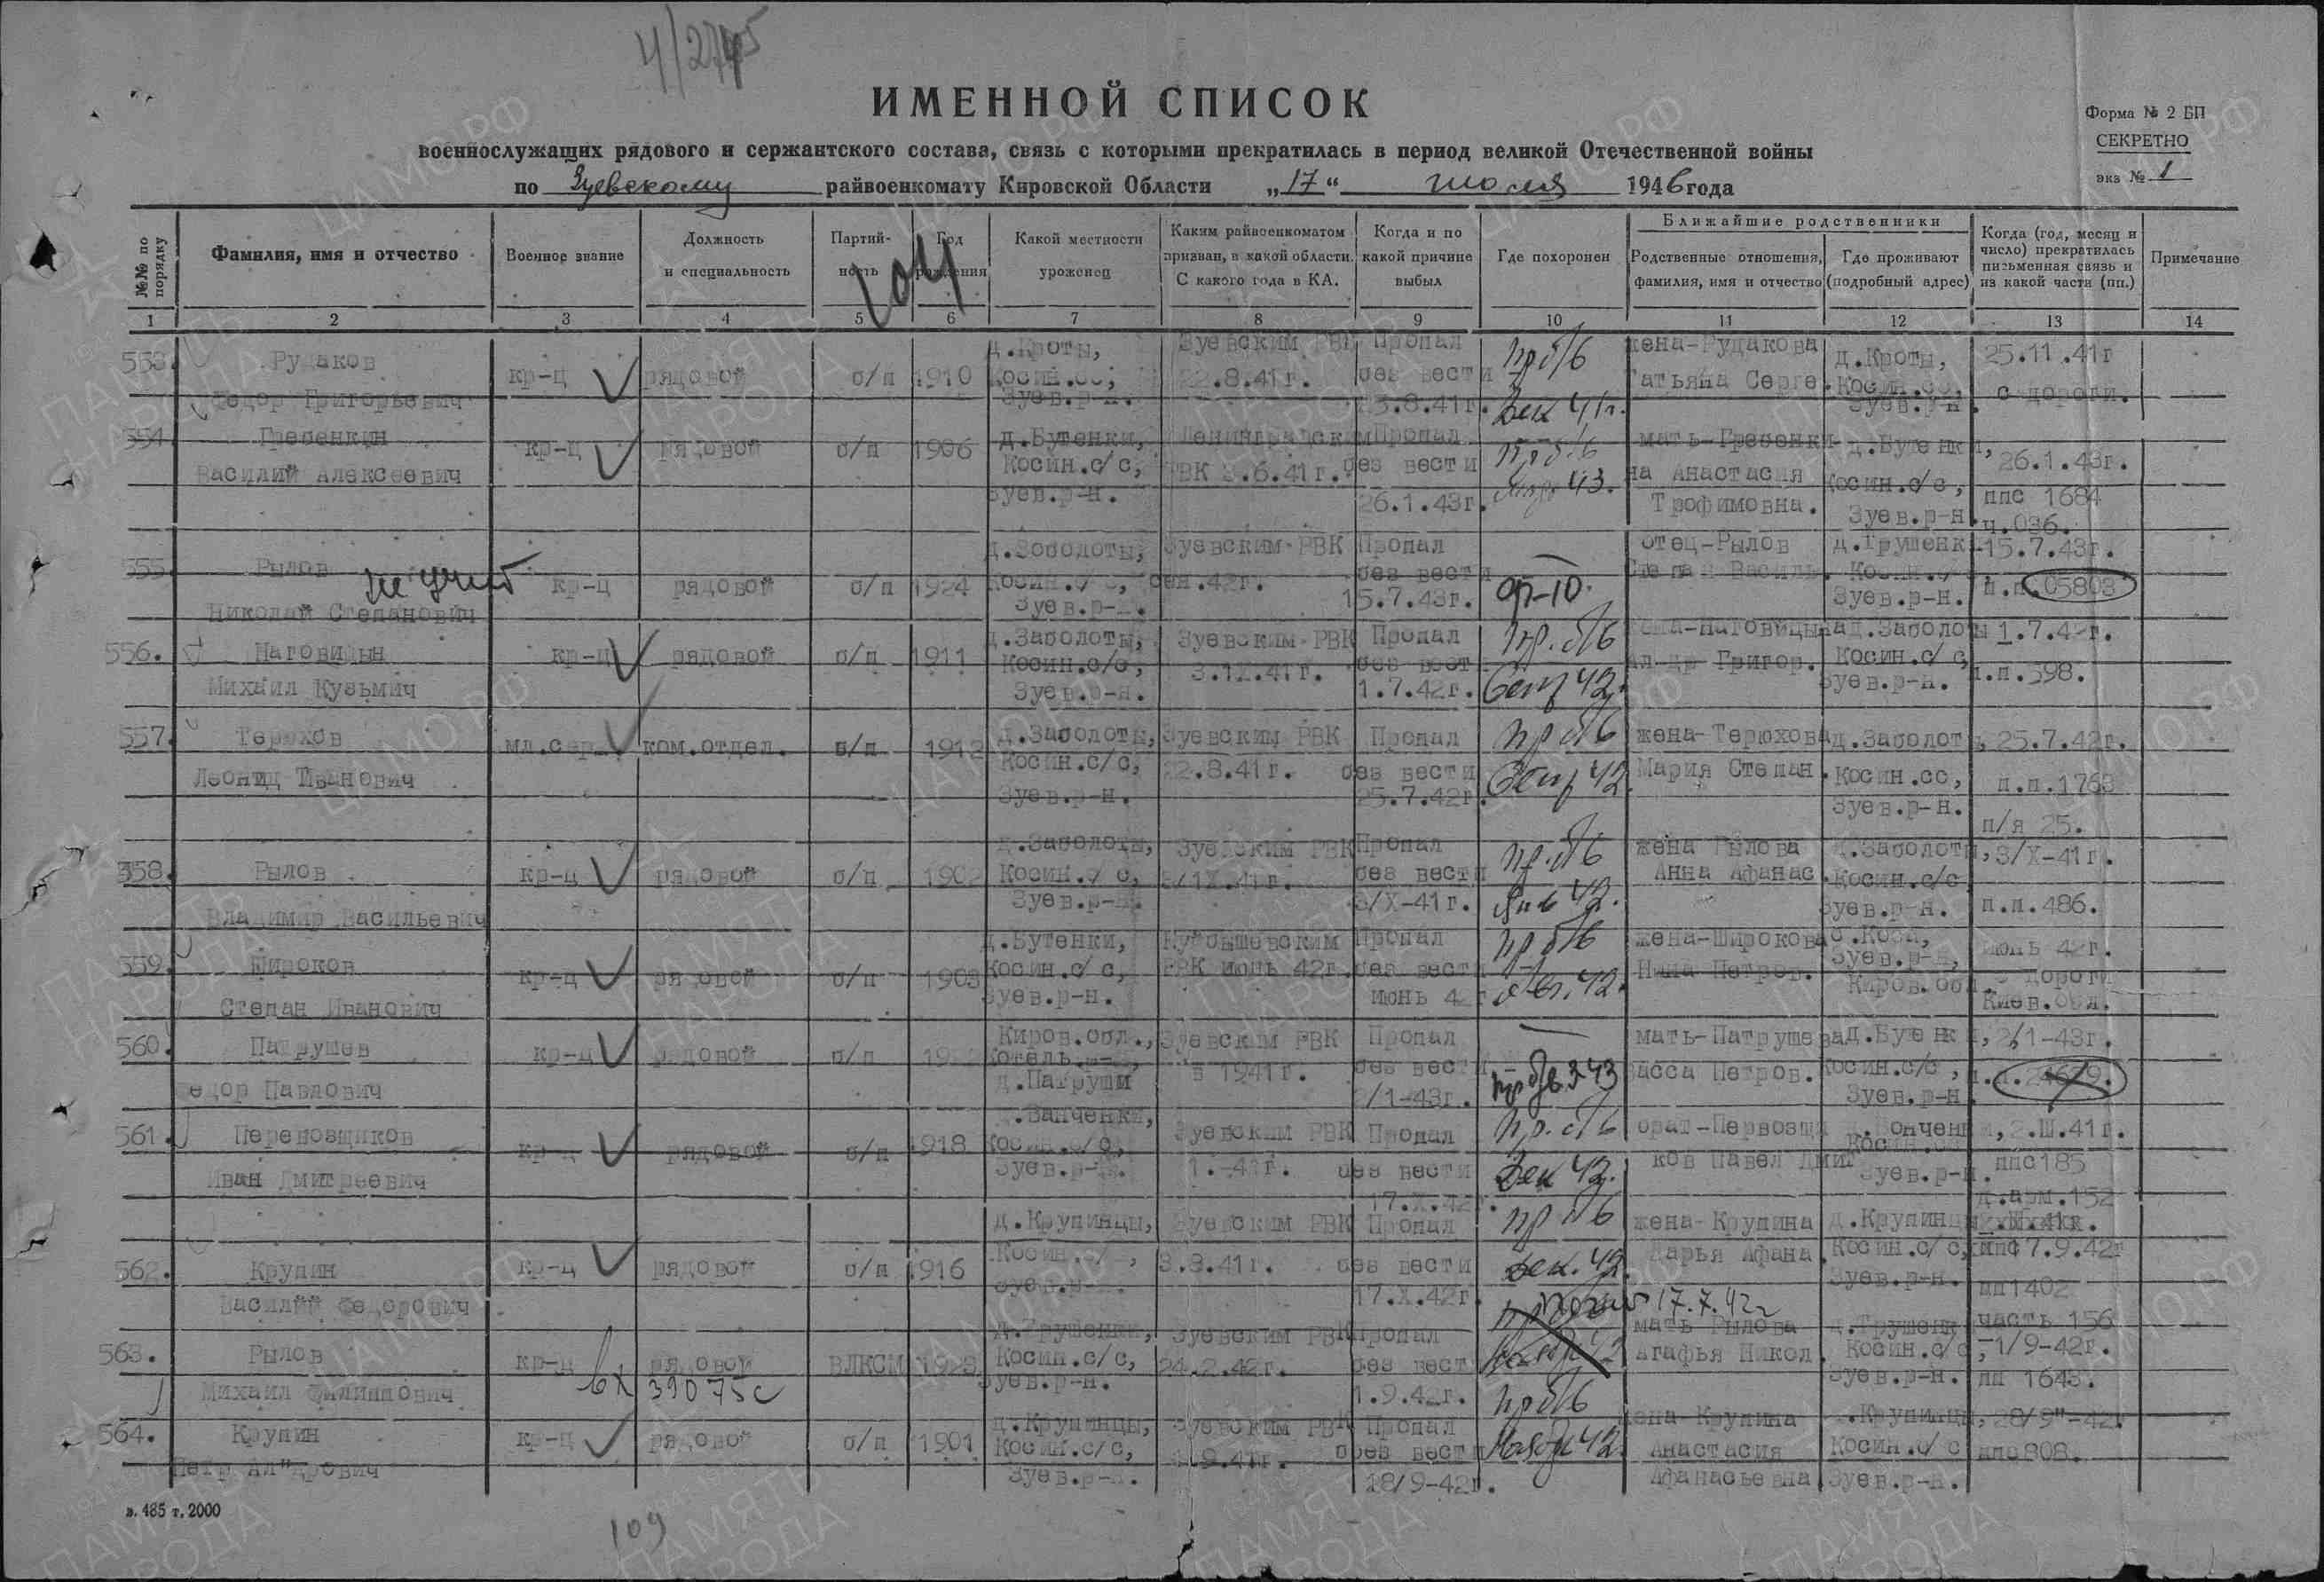 4/2745
ИМЕННОЙ СПИСОК
Форма № 2 БП
СЕКРЕТНО
экз № 1
военнослужащих рядового и сержантского состава, связь с которыми прекратилась в период великой Отечественной войны
по Зуевскому райвоенкомату Кировской Области „17“ июля 1946 года
№№ по порядку
Фамилия, имя и отчество
Военное звание
Должность и специальность
Партийность
Год рождения
Какой местности уроженец
Каким райвоенкоматом призван, в какой области. С какого года в КА.
Когда и по какой причине выбыл
Где похоронен
Ближайшие родственники
Родственные отношения, фамилия, имя и отчество
Где проживают (подробный адрес)
Когда (год, месяц и число) прекратилась письменная связь и из какой части (пп.)
Примечание
1 2 3 4 5 6 7 8 9 10 11 12 13 14
553. Рудаков кр-ц рядовой б/п 1910 д.Кроты, Зуевским РВК Пропал пр б/в жена-Рудакова д.Кроты, 25.11.41г
Федор Григорьевич Косин.сс, 22.8.41г. без вести Татьяна Серге. Косин.сс, с дороги.
Зуев.р-н. Дек 41г. Зуев.р-н.
554. Гребенкин кр-ц рядовой б/п 1906 д.Бутенки, Ленинградским Пропал пр б/в мать-Гребенки- д.Бутенки, 26.1.43г.
Василий Алексеевич Косин.с/с, РВК 3.6.41г. без вести 43. на Анастасия Косин.с/с, ппс 1684
Зуев.р-н. 26.1.43г. Трофимовна. Зуев.р-н. ч.036.
555. Рылов кр-ц рядовой б/п 1924 д.Зоболоты, Зуевским РВК Пропал отец-Рылов д.Грушенки 15.7.43г.
Николай Степанович Косин.с/с, сен.42г. без вести Степан Василь. Косин.с/с п.п.05803
Зуев.р-н. 15.7.43г. Зуев.р-н.
556. Наговицын кр-ц рядовой б/п 1911 д.Заболоты, Зуевским РВК Пропал пр. б/в жена-Наговицына д.Заболоты 1.7.42г.
Михаил Кузьмич Косин.с/с, 3.IX.41г. без вест Григор. Косин.с/с, п.п.398.
Зуев.р-н. 1.7.42г. Сент 42. Зуев.р-н.
557. Терюхов мл.сер. ком.отдел. б/п 1912 д.Заболоты, Зуевским РВК Пропал пр б/в жена-Терюхова д.Заболоты, 25.7.42г.
Леонид Иванович Косин.с/с, 22.8.41г. без вести Сент 42. Мария Степан. Косин.сс, п.п.1763
Зуев.р-н. 25.7.42г. Зуев.р-н. п/я 25.
558. Рылов кр-ц рядовой б/п 1902 д.Заболоты, Зуевским РВК Пропал пр. б/в жена Рылова д.Заболоты, 3/X-41г.
Владимир Васильевич Косин.с/с, без вести Янв 42. Анна Афанас. Косин.с/с
Зуев.р-н. 3/X-41г. Зуев.р-н. п.п.486.
559. Широков кр-ц рядовой б/п 1903 д.Бутенки, Куйбышевским Пропал пр б/в жена-Широкова с.Коса, июнь 42г.
Степан Иванович Косин.с/с, РВК июнь 42г. без вести 42. Нина Петров. Зуев.р-н, с дороги
Зуев.р-н. июнь 42г Киров.обл. Киев.обл.
560. Патрушев кр-ц рядовой б/п Киров.обл., Зуевским РВК Пропал мать-Патрушева д.Бутенки, 2/1-43г.
Федор Павлович Котель.р-н, в 1941г. без вести Васса Петров. Косин.с/с,
д.Патруши 2/1-43г. Зуев.р-н.
561. Перевозщиков кр-ц рядовой б/п 1918 д.Ванченки, Зуевским РВК Пропал пр. б/в брат-Первозщи д.Вонченки, 2.Ш.41г.
Иван Дмитреевич Косин.с/с, 1.-41г. без вести Дек 42. ков Павел Дмит Косин.сс ппс185
Зуев.р-н. 17.X.42г. Зуев.р-н. д.арм.152
562. Крупин кр-ц рядовой б/п 1916 д.Крупинцы, Зуевским РВК Пропал пр б/в жена-Крупина д.Крупинцы
Василий Федорович Косин.с/с, 3.8.41г. без вести Дек. 42. Дарья Афана. Косин.с/с, ппс 7.9.42г
Зуев.р-н. 17.X.42г. Зуев.р-н. пп1402
погиб 17.7.42г часть 156
563. Рылов кр-ц рядовой ВЛКСМ 1923 д.Грушенки, Зуевским РВК Пропал мать Рылова д.Грушенки
Михаил Филиппович вх 39075с Косин.с/с, 24.2.42г. без вест Агафья Никол. Косин.с/с, 1/9-42г.
Зуев.р-н. 1.9.42г. Зуев.р-н. пп 1643.
564. Крупин кр-ц рядовой б/п 1901 д.Крупинцы, Зуевским РВК Пропал пр б/в жена Крупина д.Крупинцы, 28/9"-42г
Петр Ал"дрович Косин.с/с, без вести Нояб 42. Анастасия Косин.с/с ппс808.
Зуев.р-н. 18/9-42г. Афанасьевна Зуев.р-н.
в. 485 т. 2000
109